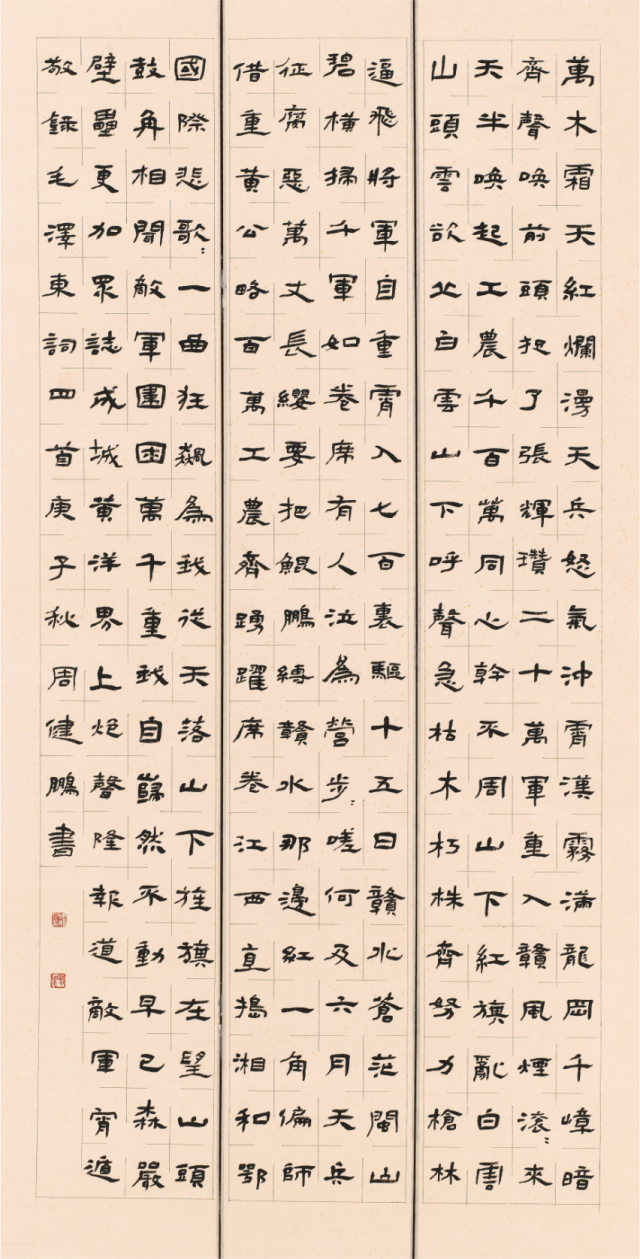 萬木霜天紅爛漫天兵怒氣沖霄漢霧滿龍岡千嶂暗
齊聲喚前頭捉了張輝瓚二十萬軍重入贛風煙滾：來
天半喚起工農千百萬同心幹不周山下紅旗亂白雲
山頭雲欲立白雲山下呼聲急枯木朽株齊努力槍林
逼飛將軍自重霄入七百裏驅十五日贛水蒼茫閩山
碧橫掃千軍如卷席有人泣為營步：嗟何及六月天兵
征腐惡萬丈長纓要把鯤鵬縛贛水那邊紅一角偏師
借重黃公略百萬工農齊踴躍席卷江西直搗湘和鄂
國際悲歌：一曲狂飆為我從天落山下旌旗在望山頭
鼓角相聞敵軍圍困萬千重我自巋然不動早已森嚴
壁壘更加眾誌成城黃洋界上炮聲隆報道敵軍宵遁
敬錄毛澤東詞四首庚子秋周健鵬書